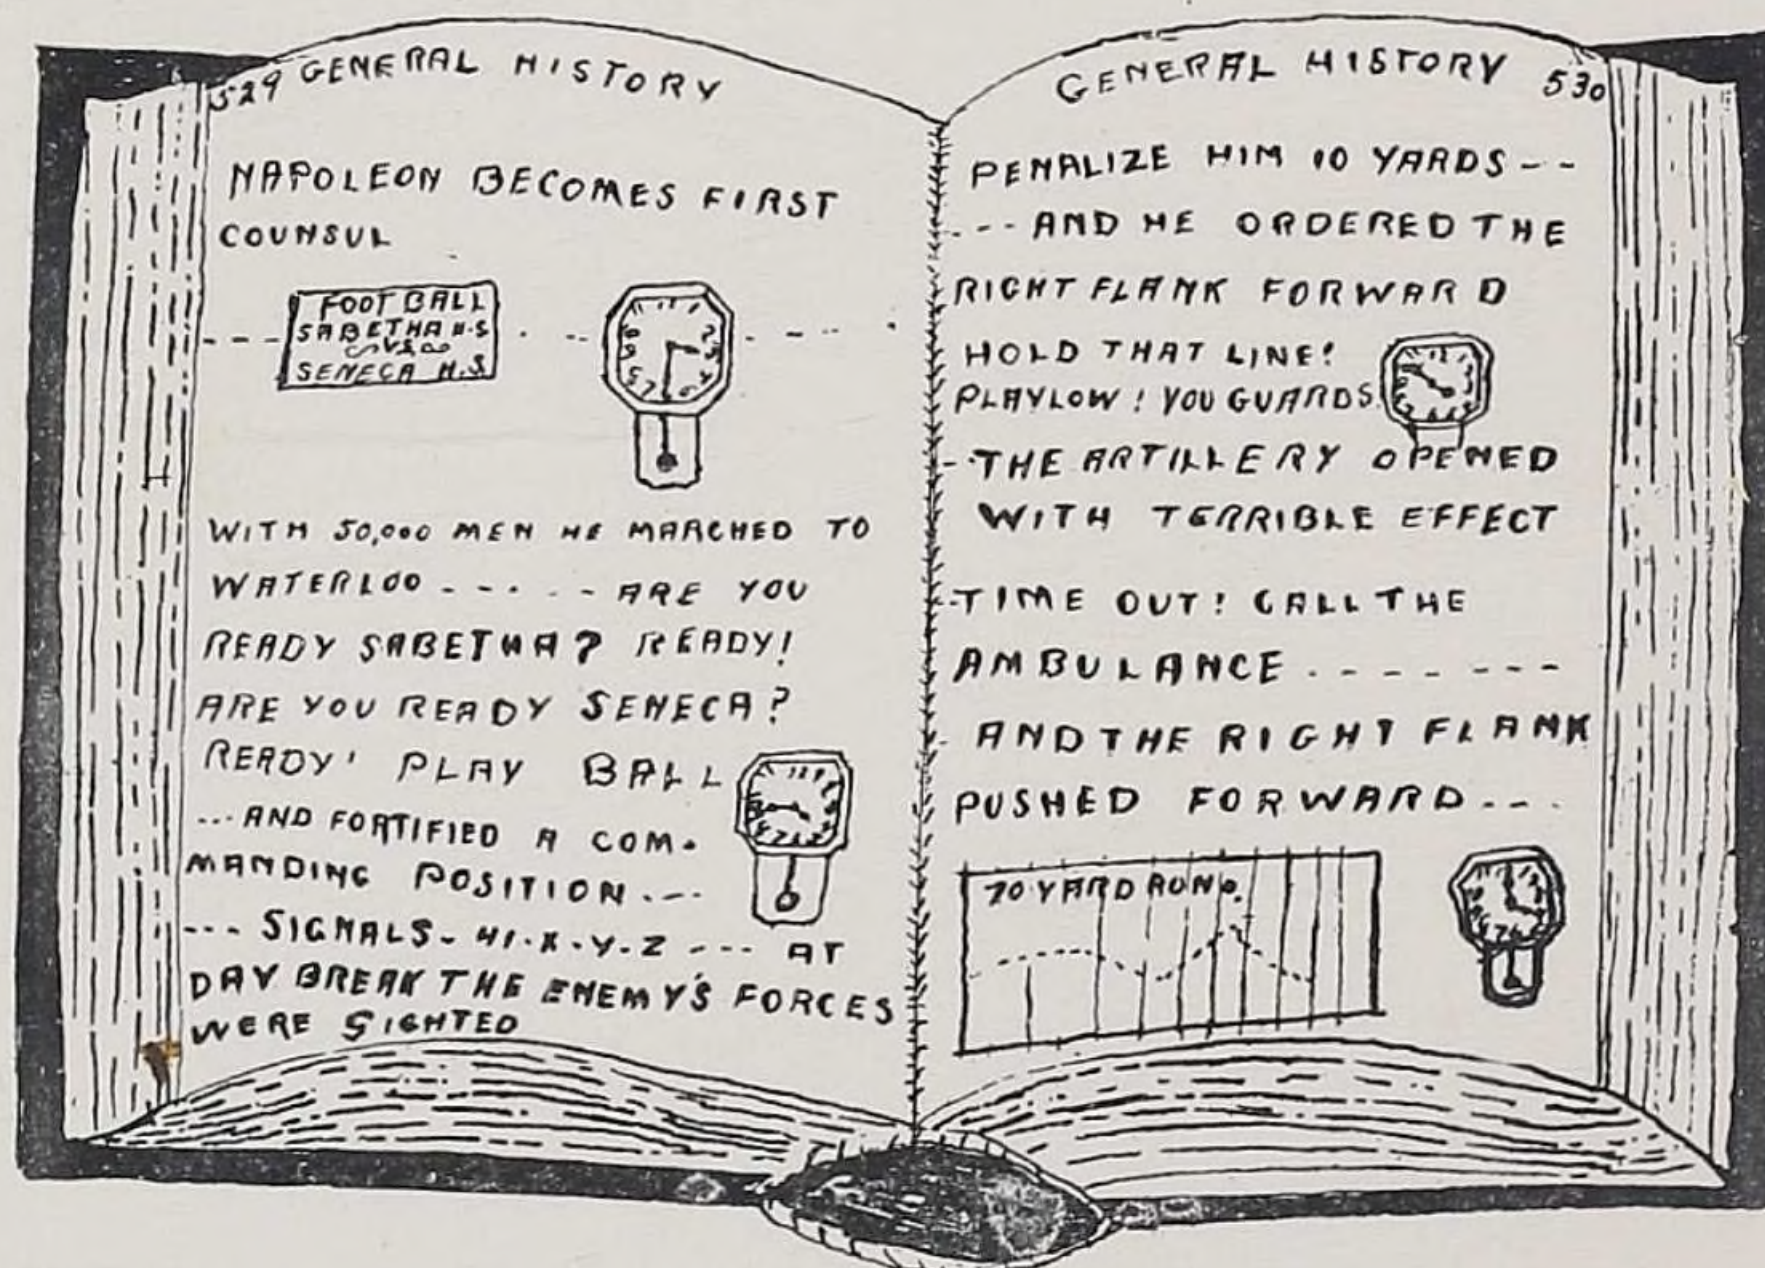 529 GENERAL HISTORY
NAPOLEON BECOMES FIRST
COUNSUL
FOOT BALL
SABETHA H.S
VS
SENECA H.S.
WITH 50,000 MEN HE MARCHED TO
WATERLOO - - - - - ARE YOU
READY SABETHA? READY!
ARE YOU READY SENECA?
READY! PLAY BALL
--- AND FORTIFIED A COM-
MANDING POSITION ---
--- SIGNALS - 41-X-Y-Z --- AT
DAY BREAK THE ENEMY'S FORCES
WERE SIGHTED
GENERAL HISTORY 530
PENALIZE HIM 10 YARDS --
--- AND HE ORDERED THE
RIGHT FLANK FORWARD
HOLD THAT LINE!
PLAY LOW! YOU GUARDS
- THE ARTILLERY OPENED
WITH TERRIBLE EFFECT
- TIME OUT! CALL THE
AMBULANCE - - - - - - -
- AND THE RIGHT FLANK
PUSHED FORWARD ---
70 YARD RUN.